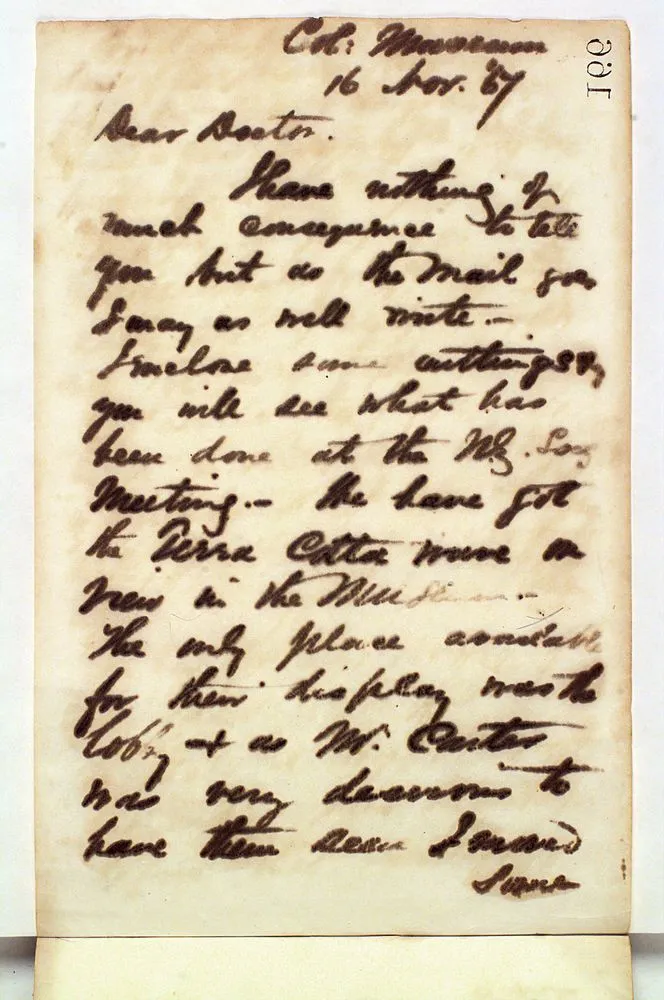 Col: Museum
16 Nov. '67
199
Dear Doctor.
I have nothing of
much consequence to tell
you but as the Mail goes
I may as well write. -
I inclose some cuttings &
you will see what has
been done at the N.Z. Soc
Meeting. - We have got
the Terra Cotta ware on
view in the Museum. -
The only place available
for their display was the
lobby & as Mr. Carter
was very desirous to
have them seen I moved
some